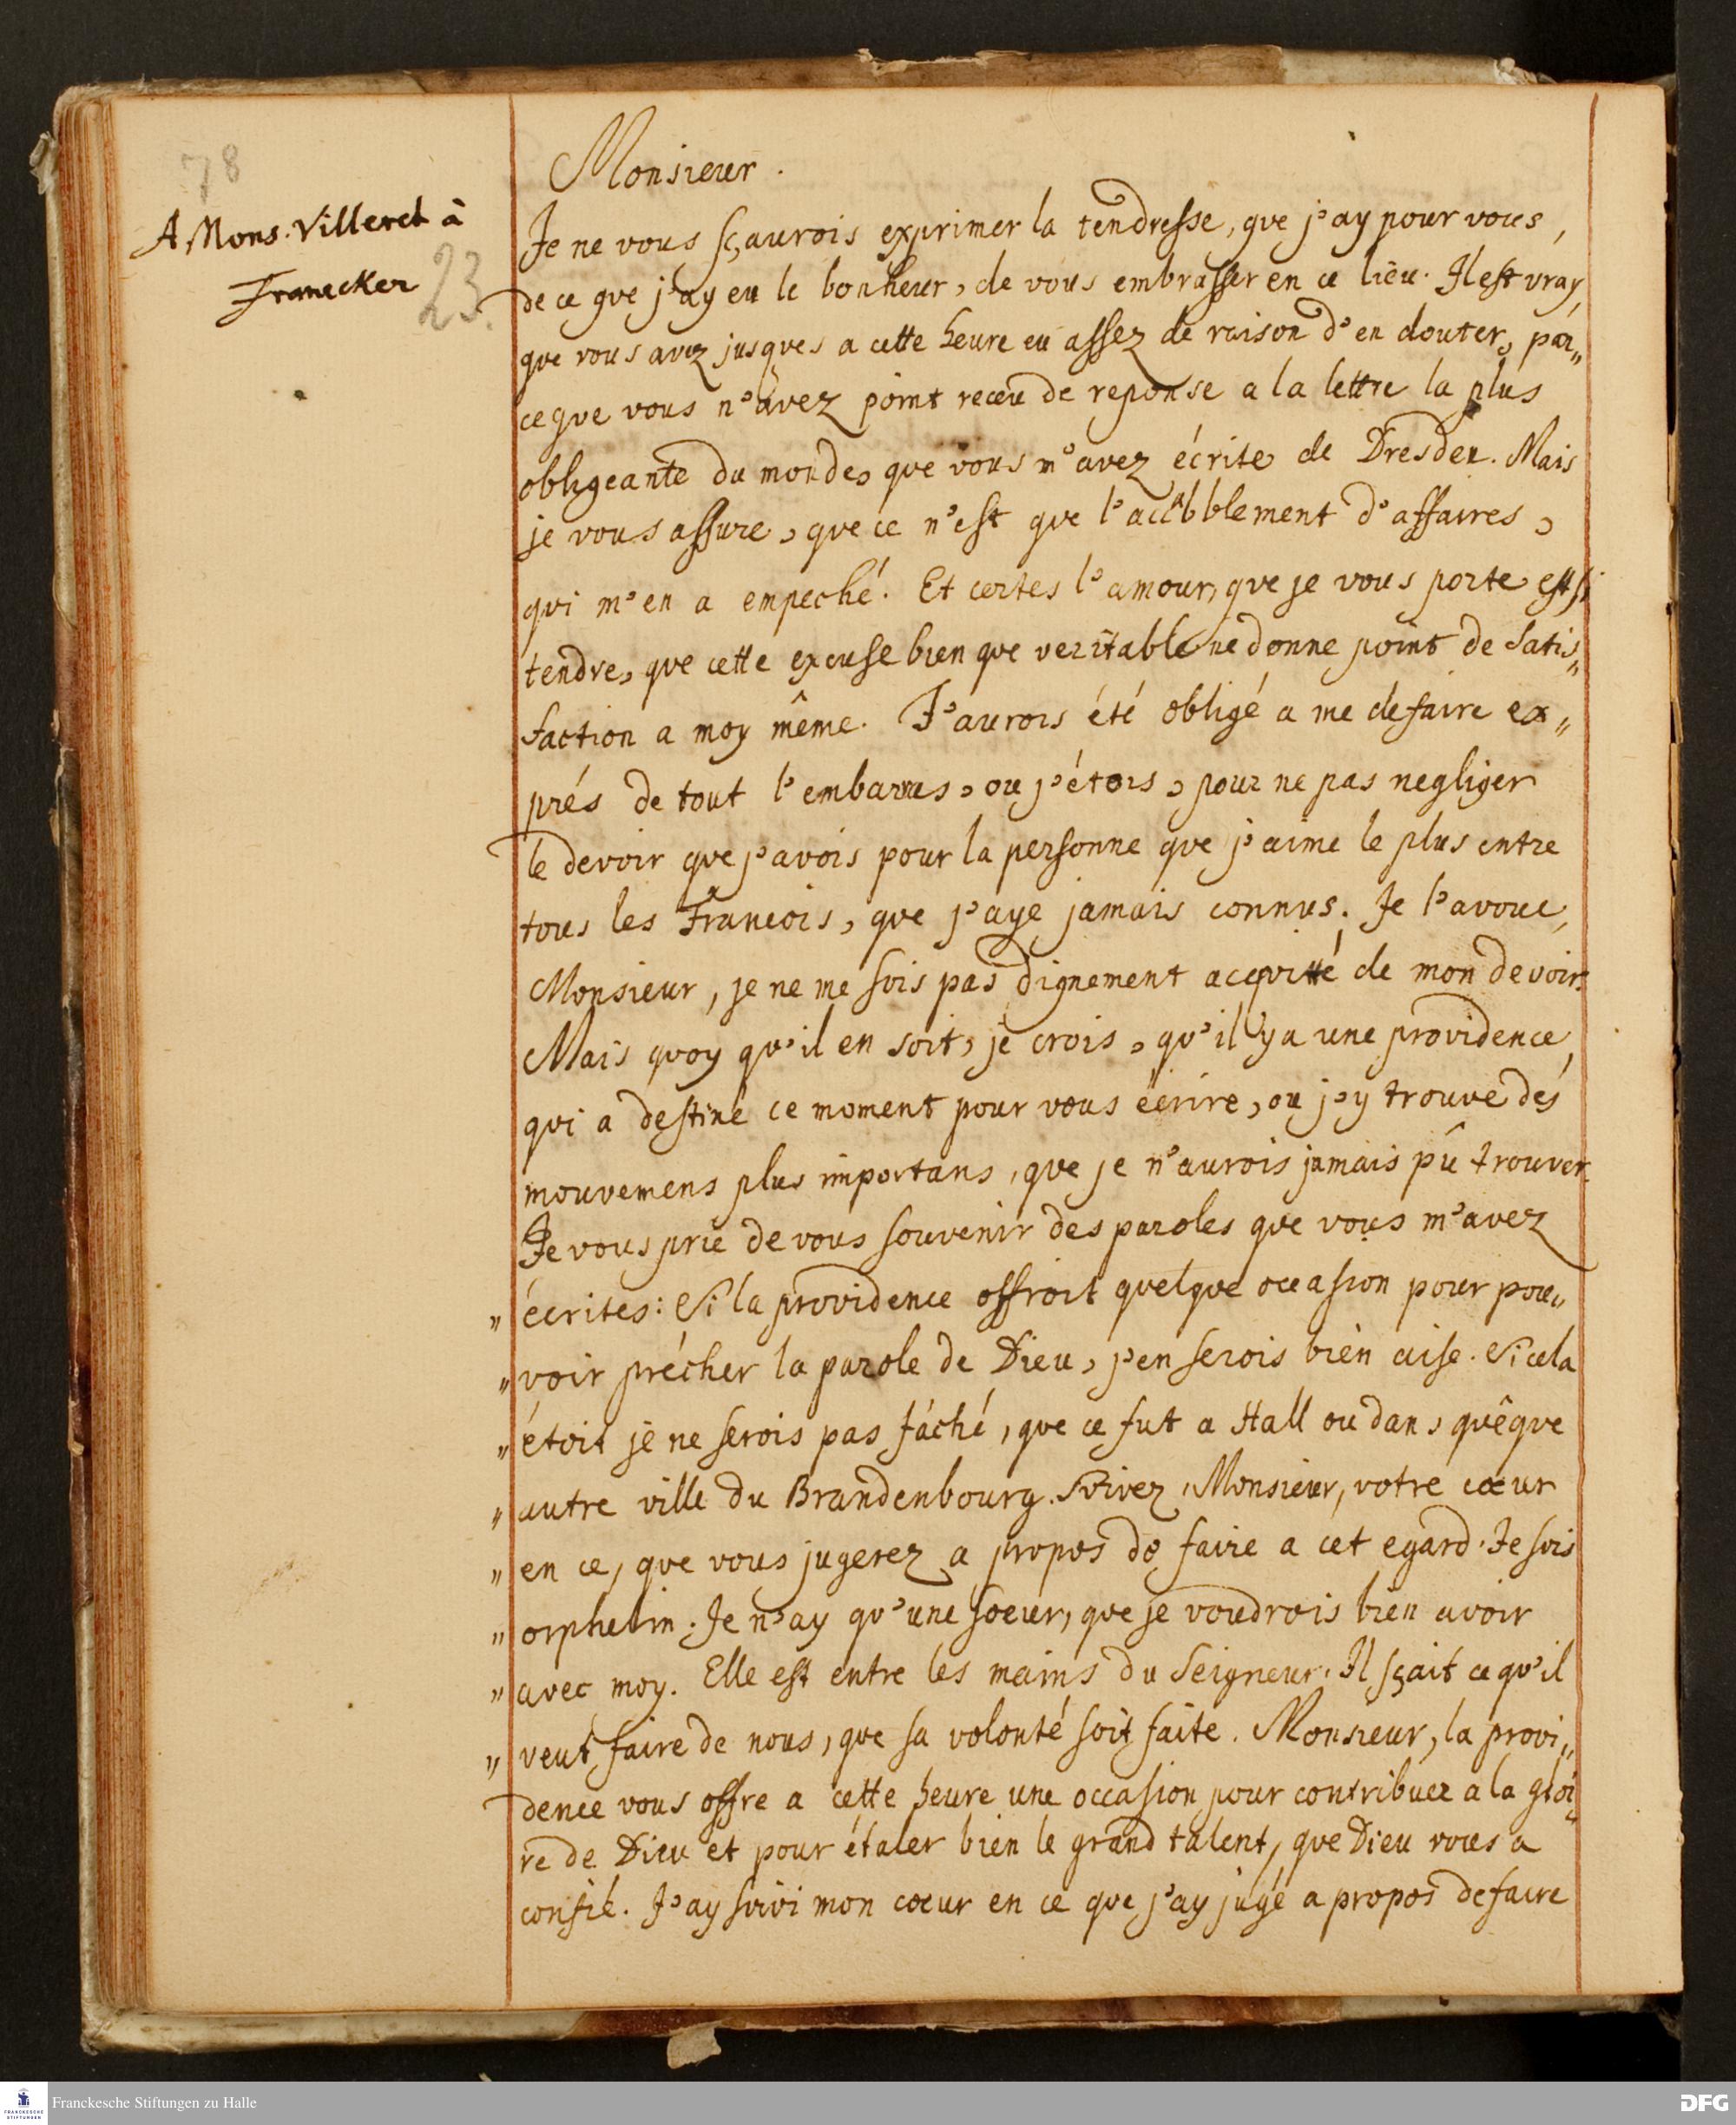 78
A Mons. Villeret à
Franecker
23.
Monsieur.
Je ne vous sçaurois exprimer la tendresse, que j'ay pour vous,
de ce que j'ay eu le bonheur, de vous embrasser en ce lieu. Il est vray,
que vous avez jusques a cette heure eu assez de raison d'en douter, par„
ceque vous n'avez point receu de reponse a la lettre la plus
obligeante du monde, que vous m'avez écrite de Dresden. Mais
je vous assure, que ce n'est que l'accabblement d'affaires,
qui m'en a empeché. Et certes l'amour, que je vous porte est si
tendre, que cette excuse bien que veritable ne donne point de satis„
faction a moy même. J'aurois été obligé a me defaire ex„
prés de tout l'embarras, ou j'étois, pour ne pas negliger
le devoir que j'avois pour la personne que j'aime le plus entre
tous les Francois, que j'aye jamais connus. Je l'avoue,
Monsieur, je ne me sois pas dignement acquitté de mon devoir.
Mais quoy qu'il en soit, je crois, qu'il y a une providence,
qui a destiné ce moment pour vous écrire, ou j'y trouve des
mouvemens plus importans, que je n'aurois jamais pû trouver.
Je vous prie de vous souvenir des paroles que vous m'avez
„ écrites: Si la providence offroit quelque occasion pour pou„
„ voir précher la parole de Dieu, j'en serois bien aise. Si cela
„ étoit je ne serois pas fáché, que ce fut a Hall ou dans quêque
„ autre ville du Brandenbourg. Svivez, Monsieur, votre cœur
„ en ce, que vous jugerez a propos de faire a cét egard. Je sois
„ orphelin. Je n'ay qu'une soeur, que je voudrois bien avoir
„ avec moy. Elle est entre les mains du Seigneur. Il sçait ce qu'il
„ veut faire de nous, que sa volonté soit faite. Monsieur, la provi„
dence vous offre a cette heure une occasion pour contribuer a la gloi„
re de Dieu et pour étaler bien le grand talent, que Dieu vous a
confié. J'ay svivi mon cœur en ce que j'ay jugé a propos de faire
FRANCKESCHE STIFTUNGEN
Franckesche Stiftungen zu Halle
DFG